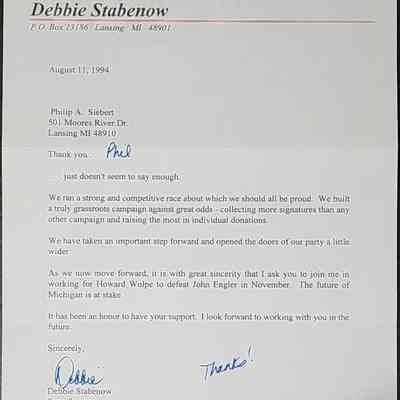 Debbie Stabenow
P.O. Box 23186 Lansing MI 48901
August 11, 1994
Philip A. Siebert
501 Moores River Dr.
Lansing MI 48910
Thank you Phil
... just doesn't seem to say enough.
We ran a strong and competitive race about which we should all be proud. We built
a truly grassroots campaign against great odds - collecting more signatures than any
other campaign and raising the most in individual donations.
We have taken an important step forward and opened the doors of our party a little
wider
As we now move forward, it is with great sincerity that I ask you to join me in
working for Howard Wolpe to defeat John Engler in November. The future of
Michigan is at stake.
It has been an honor to have your support. I look forward to working with you in the
future.
Sincerely,
Debbie
Thanks!
Debbie Stabenow